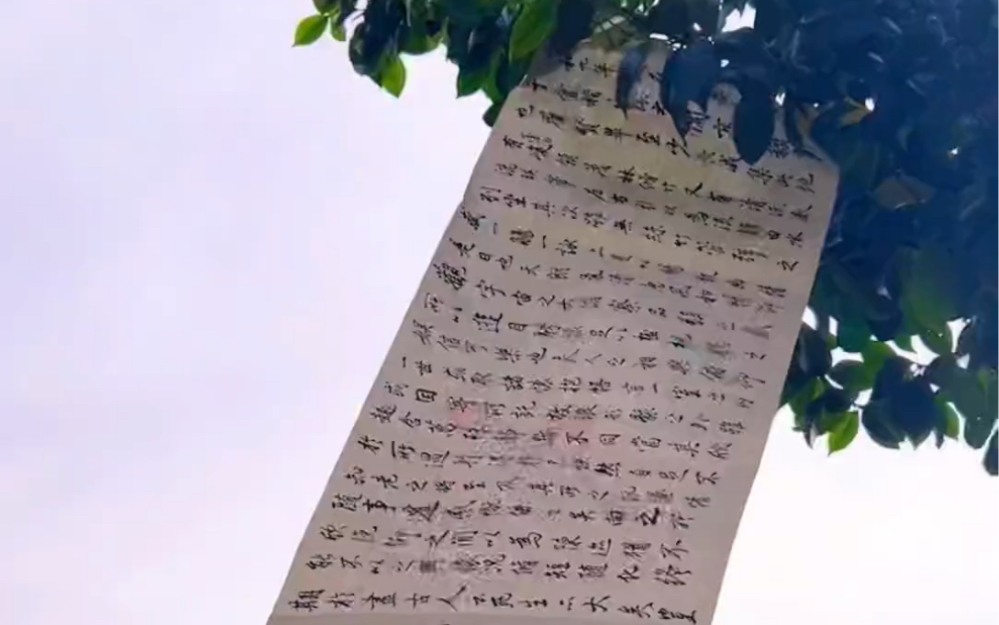 和九年
于會稽山
也羣賢畢至少長咸集此地
有峻領茂林脩竹又有清流激
湍左右引以為流觴曲水
列坐其次雖無絲竹管弦之
盛一觴一詠亦足以暢敘幽情
是日也天朗氣清惠風和暢仰
觀宇宙之大俯察品類之盛
所以遊目騁懷足以極視聽之
娛信可樂也夫人之相與俯仰
一世或取諸懷抱悟言一室之內
或因寄所託放浪形骸之外雖
趣舍萬殊靜躁不同當其欣
於所遇得於己快然自足不
知老之將至及其所之既惓情
隨事遷感慨係之矣向之所
欣俛仰之間以為陳迹猶不
能不以之興懷況脩短隨化終
期於盡古人云死生亦大矣豈